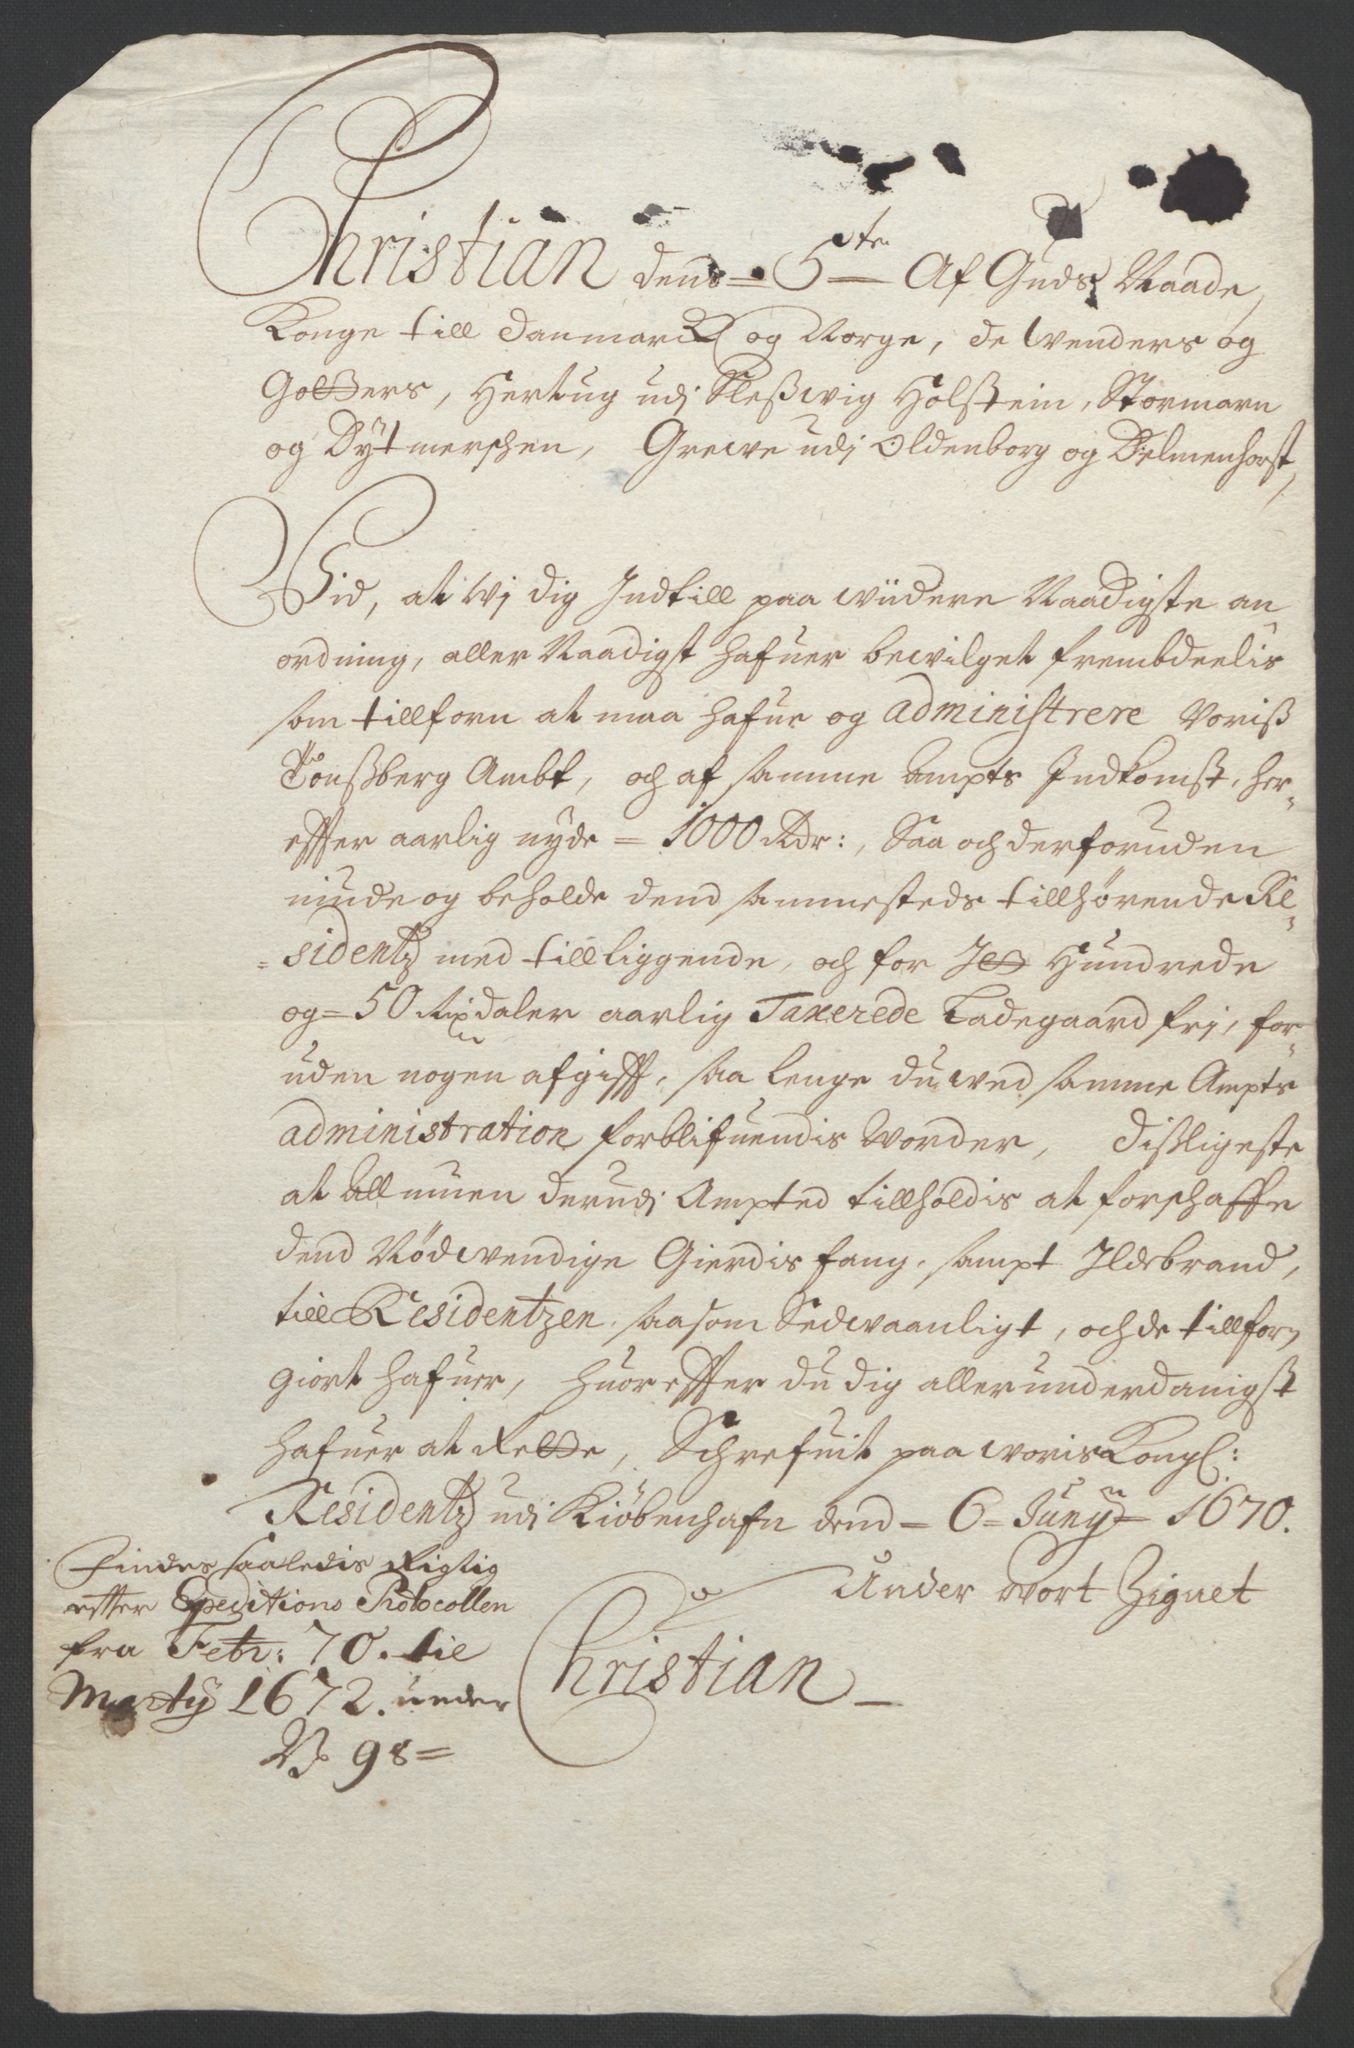 Christian dend = 5te Af Guds Naade,
Konge till Danmarck og Norge, de Wenders og
Gotthers, Hertug udj Sleßwig Holstein, Stormarn
og Dÿtmerschen, Grewe udj Oldenborg og Delmenhorst,
Vid, at Wj dig Indtill paa widere Naadigste an
ordning, aller Naadigst hafuer bewilget frembdeelis
som tillforn at maa hafue og administrere Voriß
Tonßberg Ambt, och af samme Ampts Indkomst, her-
effter aarlig nyde = 1000 Rdr:, Saa och derforuden
niude og beholde dend sammesteds tillhørende Re-
=sidentz med tilliggende, och for Jtt Hundrede
og = 50 Rixdaler aarlig Taxerede Ladegaard frj, for-
uden nogen afgifft, saa lenge du wed samme Ampts
administration forblifuendis Worder, dißligeste
at Allmuen derudj Ampted tillholdis at forschaffe
dend Nødwendige Gierdisfang, sampt Ildebrand,
till Residentzen, saasom Sedwaanligt, och de tillforn
giort hafuer, huoreffter du dig allerunderdanigst
hafuer at Rette, Schrefuit paa woris Kongl:
Residentz udj Kiöbenhafn dend = 6 = Junÿ = 1670.
Under Wort Zignet
Christian
Findes saaledis Rigtig
efter Expeditions Protocollen
fra Febr: 70. til
Martÿ 1672. under
No 98 =